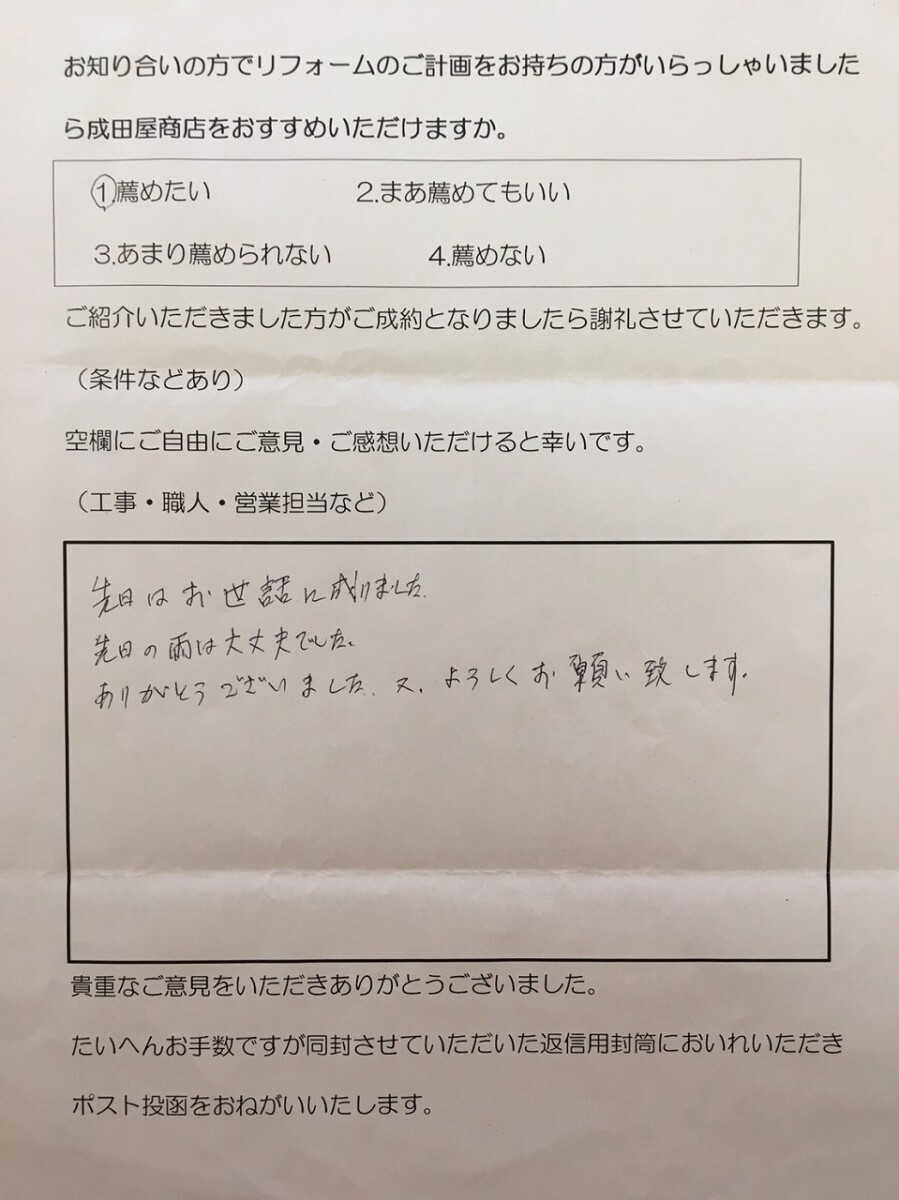 お知り合いの方でリフォームのご計画をお持ちの方がいらっしゃいました
ら成田屋商店をおすすめいただけますか。
1.薦めたい 2.まあ薦めてもいい
3.あまり薦められない 4.薦めない
ご紹介いただきました方がご成約となりましたら謝礼させていただきます。
（条件などあり）
空欄にご自由にご意見・ご感想いただけると幸いです。
（工事・職人・営業担当など）
先日はお世話に成りました.
先日の雨は大丈夫でした。
ありがとうございました. 又. よろしくお願い致します。
貴重なご意見をいただきありがとうございました。
たいへんお手数ですが同封させていただいた返信用封筒においれいただき
ポスト投函をおねがいいたします。